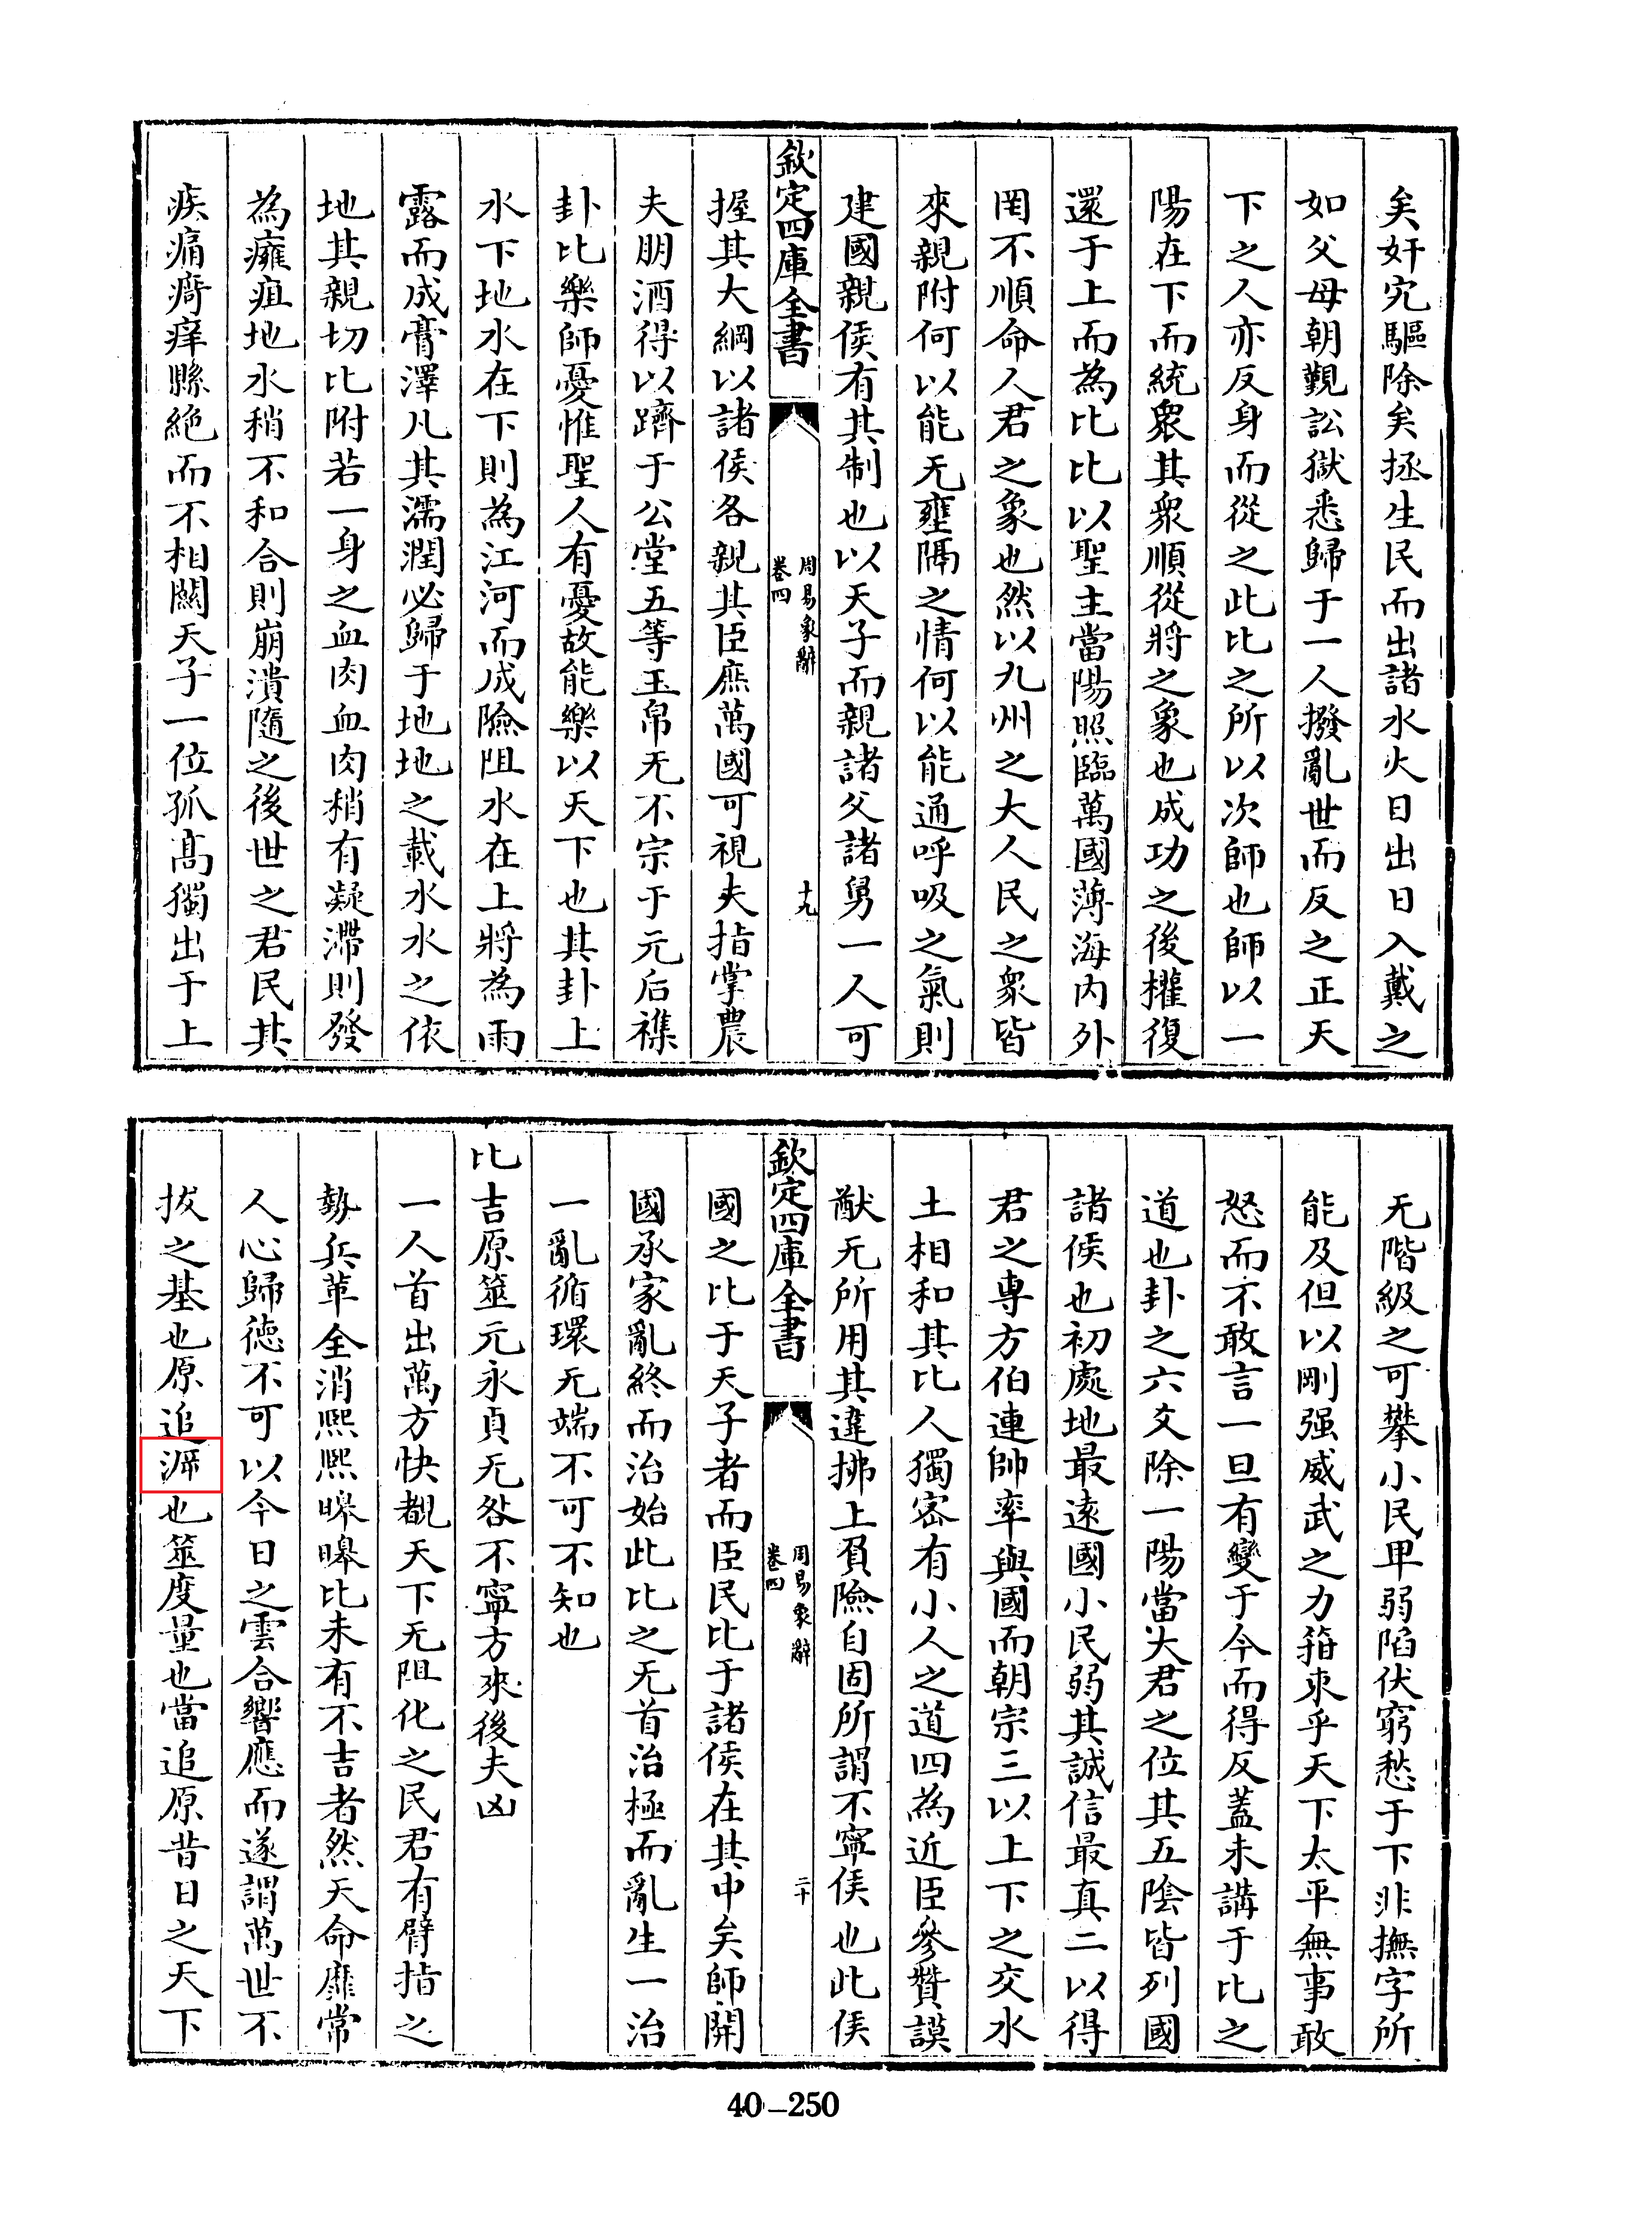 矣奸宄驅除矣拯生民而出諸水火日出日入戴之
如父母朝覲訟獄悉歸于一人撥亂世而反之正天
下之人亦反身而從之此比之所以次師也師以一
陽在下而統衆其衆順從將之象也成功之後權復
還于上而為比比以聖主當陽照臨萬國薄海内外
罔不順命人君之象也然以九州之大人民之衆皆
來親附何以能无壅隔之情何以能通呼吸之氣則
建國親侯有其制也以天子而親諸父諸舅一人可
欽定四庫全書
周易象辭
卷四
十九
握其大綱以諸侯各親其臣庶萬國可視夫指掌農
夫朋酒得以躋于公堂五等玉帛无不宗于元后襍
卦比樂師憂惟聖人有憂故能樂以天下也其卦上
水下地水在下則為江河而成險阻水在上將為雨
露而成膏澤凡其濡潤必歸于地地之載水水之依
地其親切比附若一身之血肉血肉稍有凝滯則發
為癰疽地水稍不和合則崩潰隨之後世之君民其
疾痛疴痒縣絶而不相關天子一位孤髙獨出于上
无階級之可攀小民卑弱陷伏窮愁于下非撫字所
能及但以剛强威武之力箝束乎天下太平無事敢
怒而不敢言一旦有變于今而得反蓋未講于比之
道也卦之六爻除一陽當大君之位其五陰皆列國
諸侯也初處地最遠國小民弱其誠信最真二以得
君之専方伯連帥率與國而朝宗三以上下之交水
土相和其比人獨宻有小人之道四為近臣參贊謨
猷无所用其違拂上負險自固所謂不寧侯也此侯
欽定四庫全書
周易象辭
卷四
二十
國之比于天子者而臣民比于諸侯在其中矣師開
國承家亂終而治始此比之无首治極而亂生一治
一亂循環无端不可不知也
比吉原筮元永貞无咎不寧方來後夫凶
一人首出萬方快覩天下无阻化之民君有臂指之
勢兵革全消熙熙皡皡比未有不吉者然天命靡常
人心歸徳不可以今日之雲合響應而遂謂萬世不
拔之基也原追㴑也筮度量也當追原昔日之天下
40-250